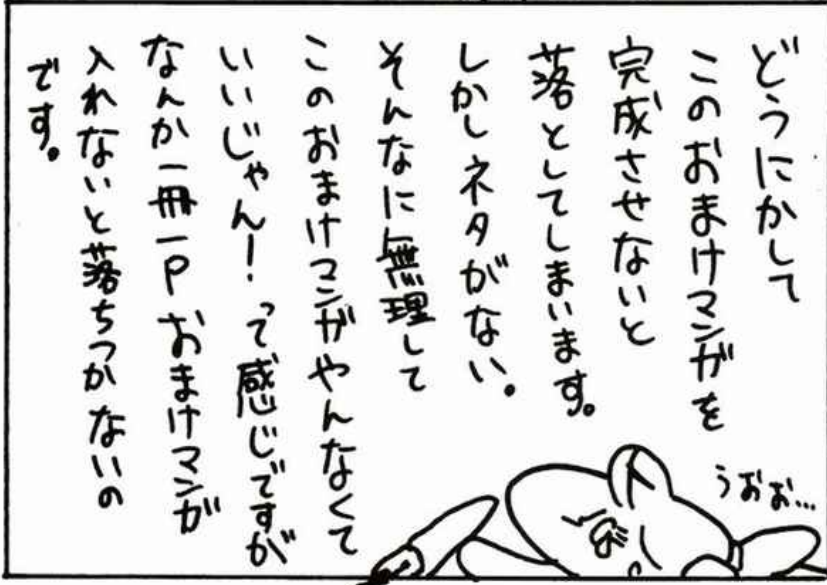 どうにかして
このおまけマンガを
完成させないと
落としてしまいます。
しかしネタがない。
そんなに無理して
このおまけマンガやんなくて
いいじゃん！って感じですが
なんか一冊一Pおまけマンガ
入れないと落ちつかないの
です。
うおお…